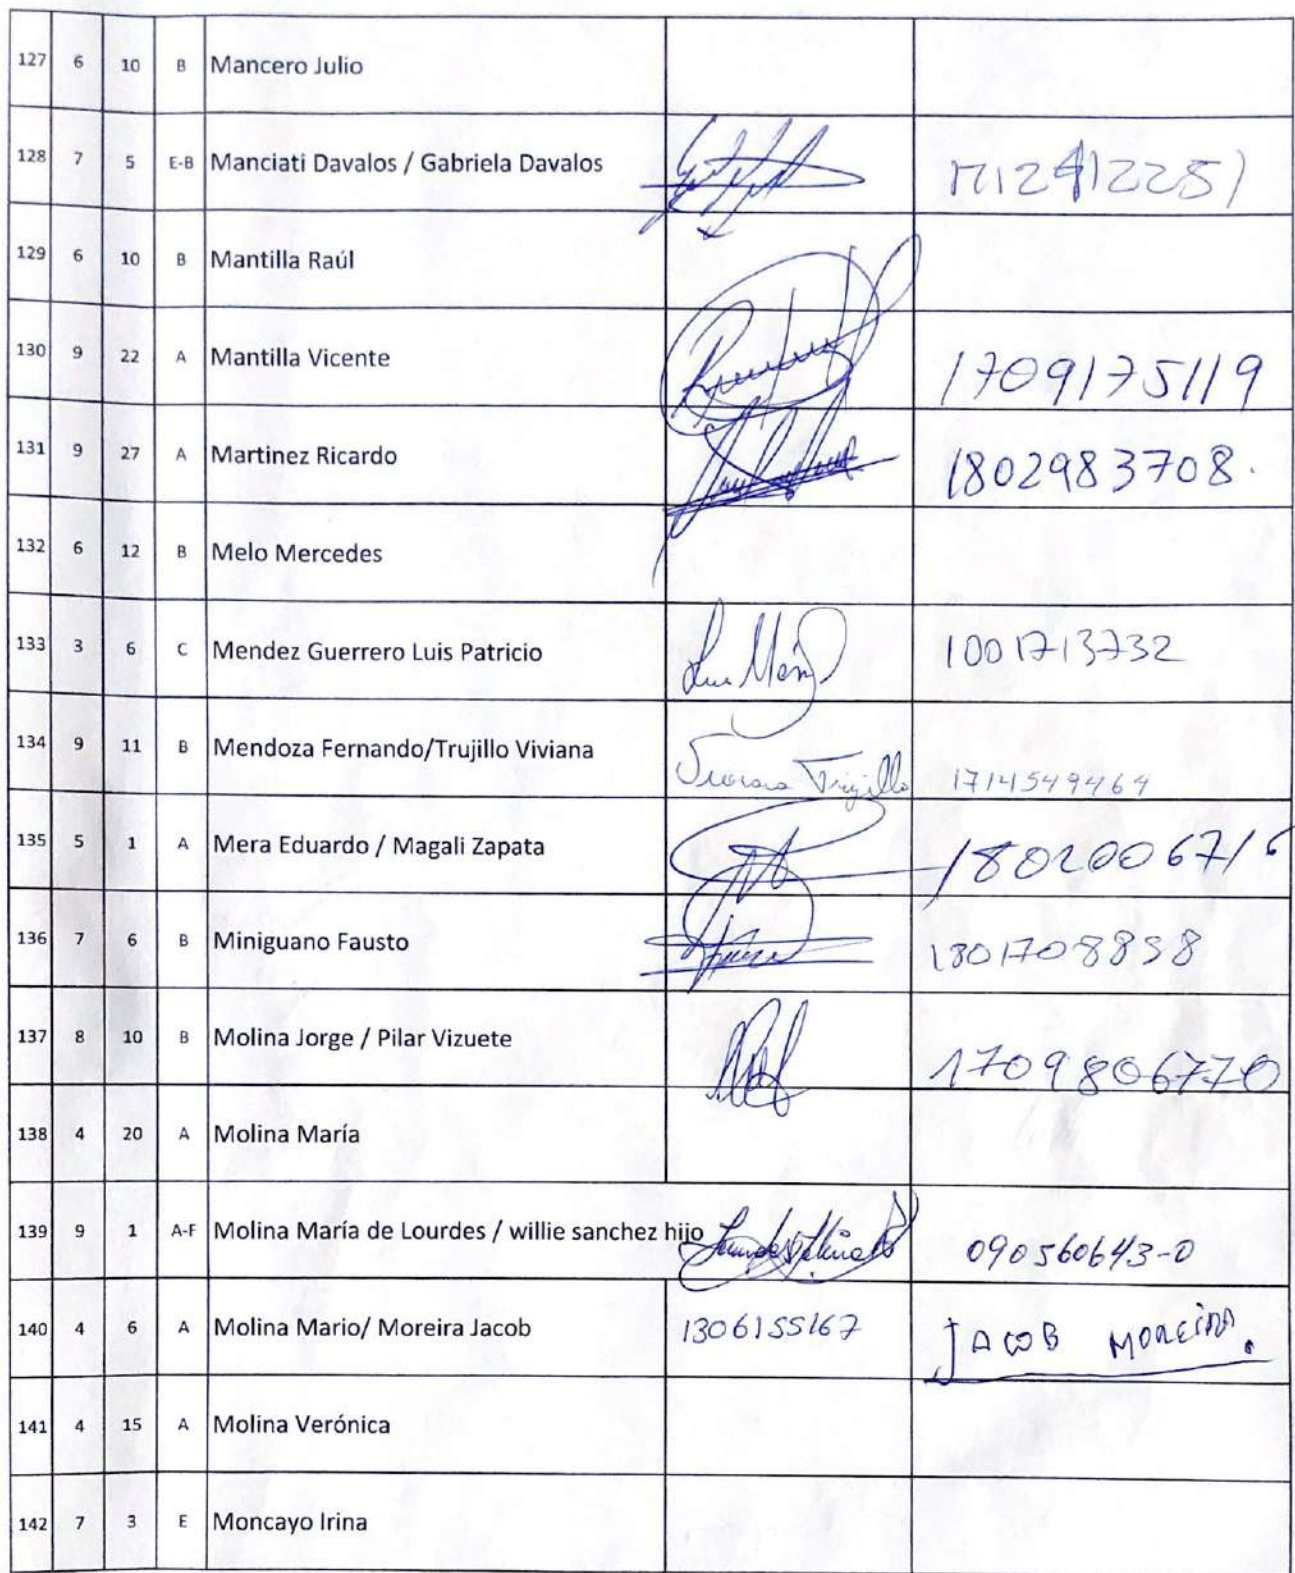 127 6 10 B Mancero Julio
128 7 5 E-B Manciati Davalos / Gabriela Davalos 1712412251
129 6 10 B Mantilla Raúl
130 9 22 A Mantilla Vicente 1709175119
131 9 27 A Martinez Ricardo 1802983708.
132 6 12 B Melo Mercedes
133 3 6 C Mendez Guerrero Luis Patricio 1001713732
134 9 11 B Mendoza Fernando/Trujillo Viviana Viviana Trujillo 1714549464
135 5 1 A Mera Eduardo / Magali Zapata 1802006716
136 7 6 B Miniguano Fausto 1801708858
137 8 10 B Molina Jorge / Pilar Vizuete 1709806770
138 4 20 A Molina María
139 9 1 A-F Molina María de Lourdes / willie sanchez hijo 090560643-0
140 4 6 A Molina Mario/ Moreira Jacob 1306155167 JACOB MOREIRA.
141 4 15 A Molina Verónica
142 7 3 E Moncayo Irina